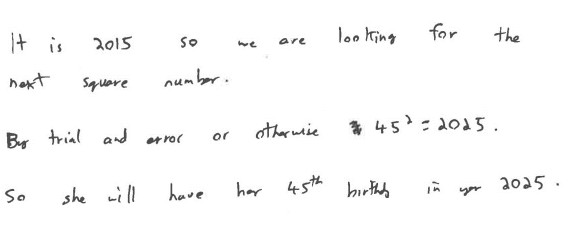 It is 2015 so we are looking for the
next square number.
By trial and error or otherwise 45² = 2025.
So she will have her 45th birthdy in yer 2025.